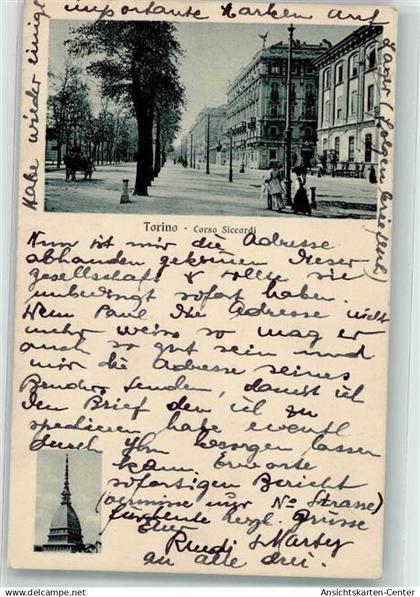 Habe wieder einige
importante Marken auf
Lager (folgen brieflich)
Torino - Corso Siccardi
Nun ist mir die Adresse
abhanden gekommen dieser
gesellschaft & sollte sie
unbedingt sofort haben.
Wenn Paul die Adresse nicht
mehr weiss so mag er
auch so gut sein und
mir die Adresse seines
Bruders senden, damit ich
den Brief den ich zu
spedieren habe eventl
durch Ihn besorgen lassen
kann. Erwarte
sofortigen Bericht
(vermisse nur No Strasse)
herzl. Grüsse
Euer
Ruedi & Martey
an alle drei.
Ansichtskarten-Center